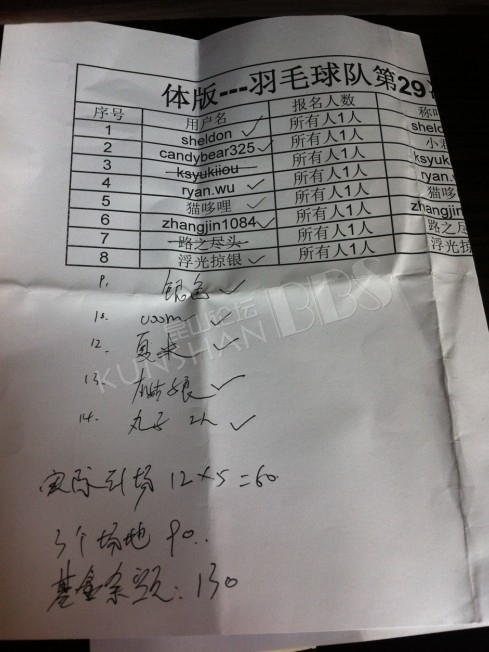 体版---羽毛球队第29
序号 用户名 报名人数 称呼
1 sheldon 所有人1人 sheld
2 candybear325 所有人1人 小
3 ksyukiiou 所有人1人 ksyuk
4 ryan.wu 所有人1人 ryan.
5 猫哆哩 所有人1人 猫哆
6 zhangjin1084 所有人1人 zhang
7 路之尽头 所有人1人 路之尽
8 浮光掠银 所有人1人 浮光掠
9. 银色
10.
12. 夏末
13. 娘
14. 丸子 2人
实际到场 12×5=60
3个场地 90..
基金余额: 130
昆山论坛
KUNSHAN BBS